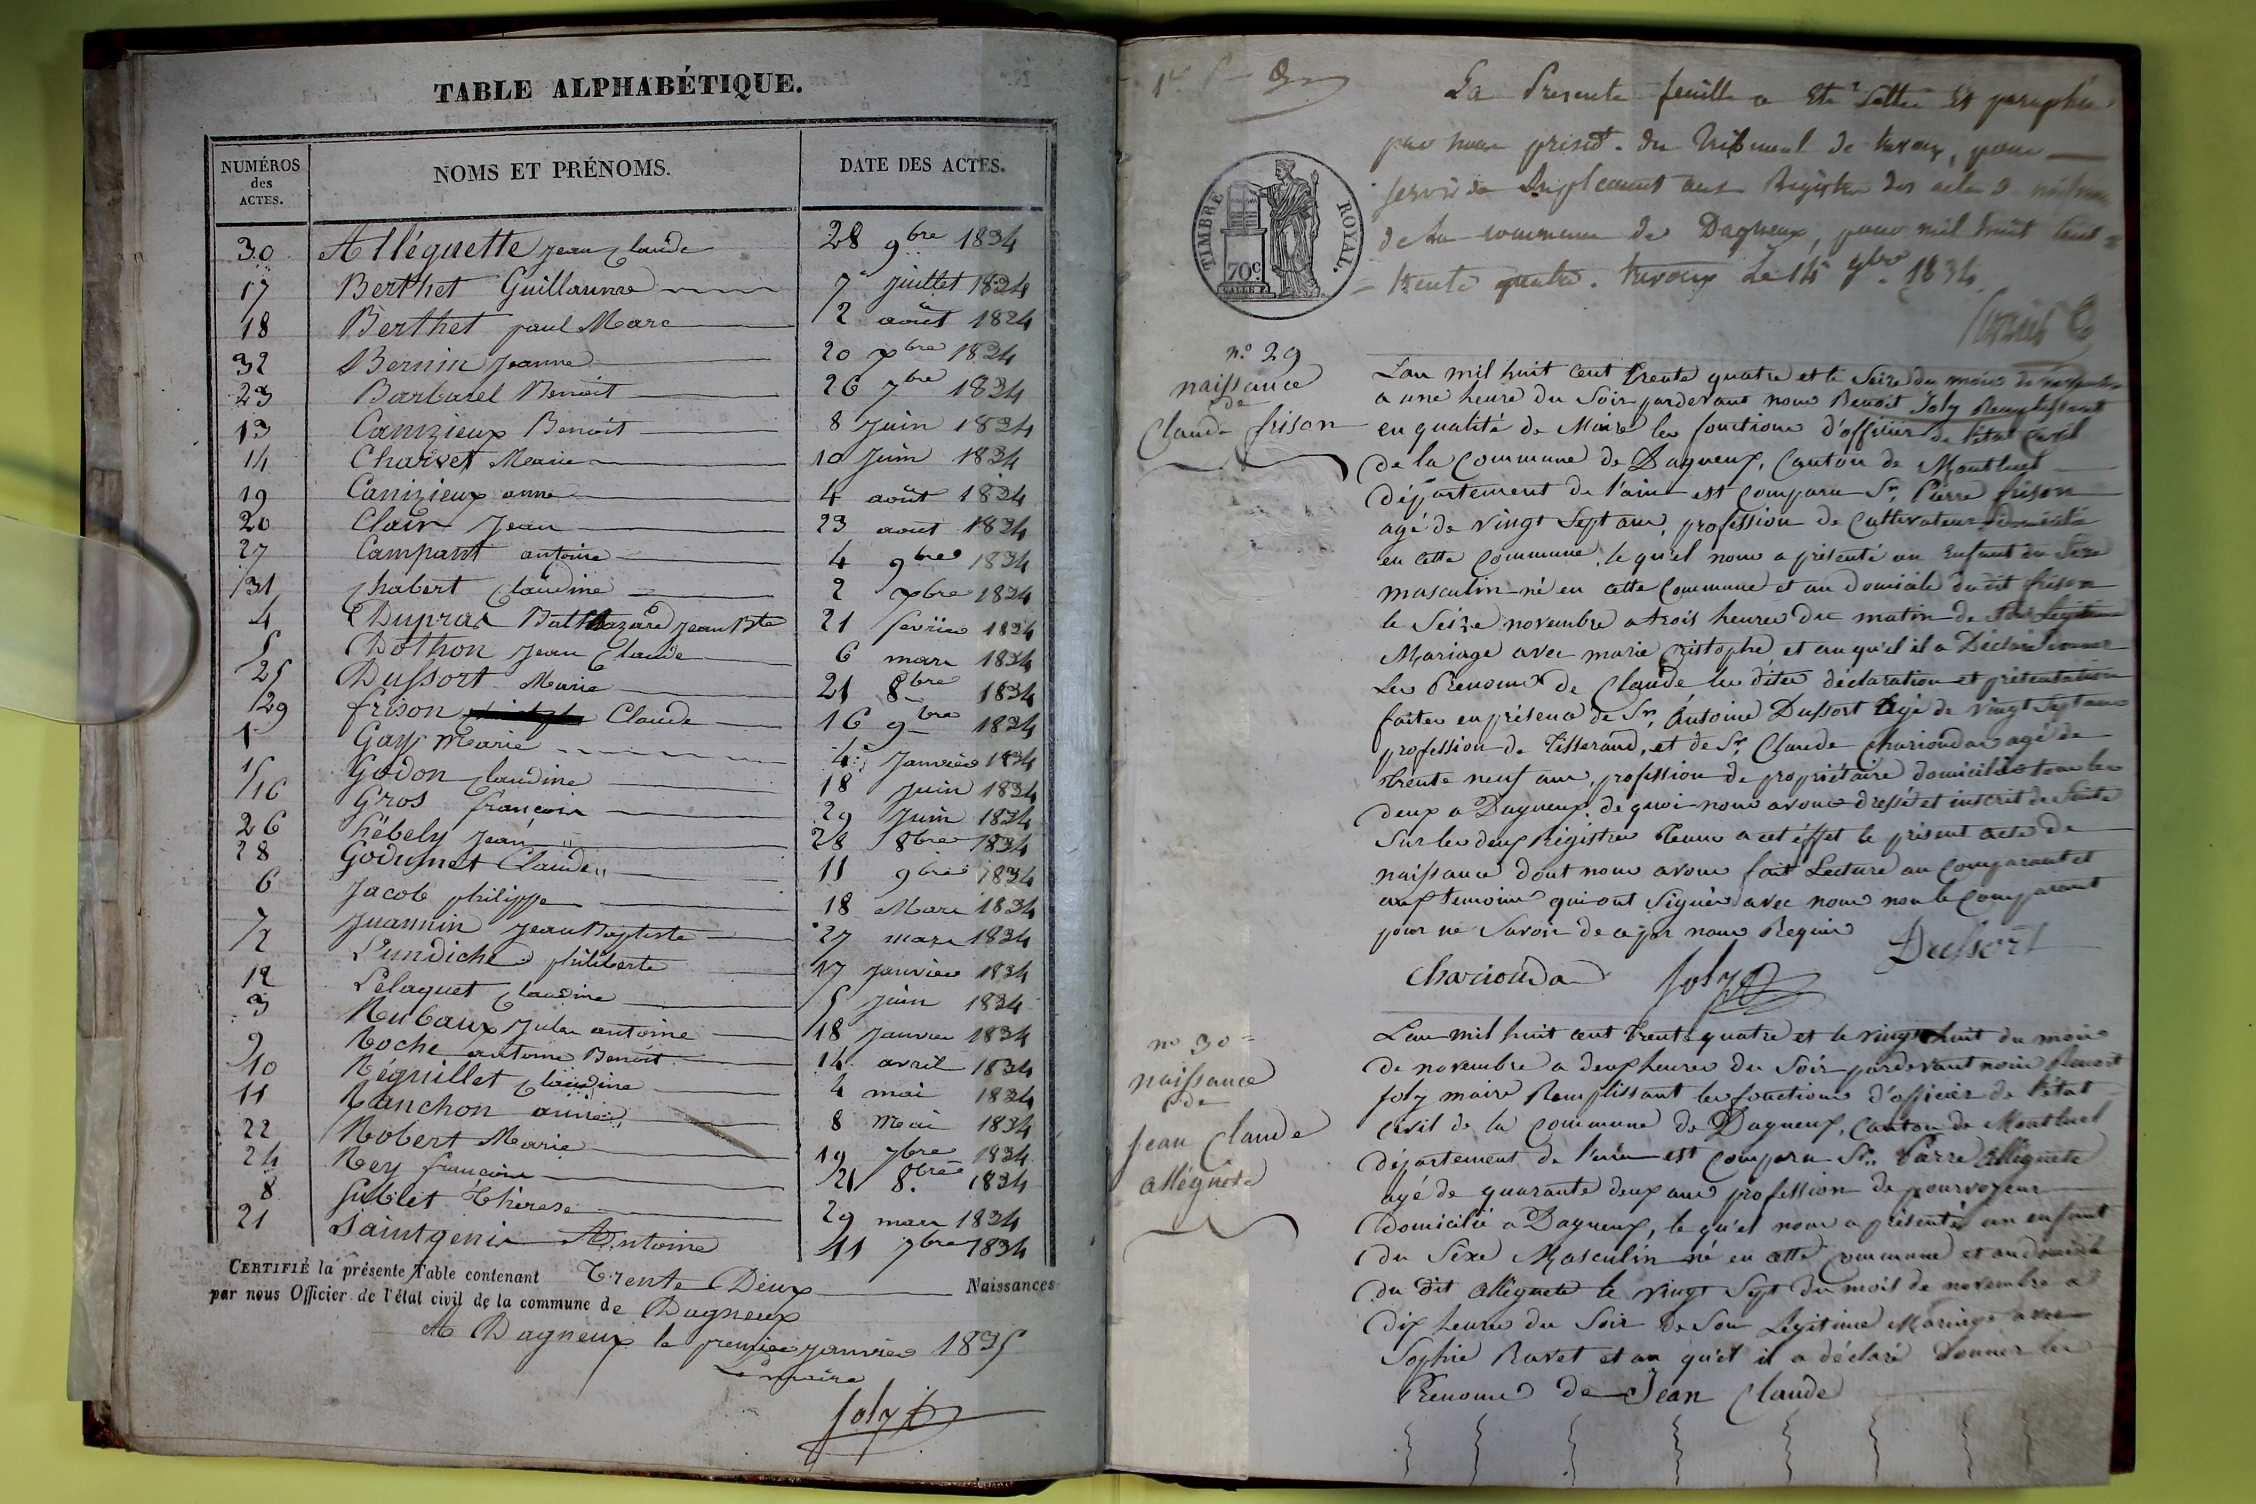 TABLE ALPHABÉTIQUE.
NUMÉROS des ACTES. NOMS ET PRÉNOMS. DATE DES ACTES.
30 Alléguette Jean Claude 28 9bre 1834
17 Berthet Guillaume 7 juillet 1834
18 Berthet paul Marc 2 août 1834
32 Bernin Jeanne 20 xbre 1834
23 Barbarel Benoit 26 7bre 1834
13 Canizieux Benoit 8 Juin 1834
14 Charvet Marie 10 Juin 1834
19 Canizieux anne 4 août 1834
20 Clair Jean 23 août 1834
27 Campant antoine 4 9bre 1834
31 Chabert Claudine 2 xbre 1834
4 Dupras Balthazard Jean Bte 21 fevrier 1834
5 Dothon Jean Claude 6 mars 1834
25 Dussort Marie 21 8bre 1834
29 frison Claude 16 9bre 1834
1 Gay Marie 4 Janvier 1834
15 Godon Claudine 18 Juin 1834
16 Gros françois 29 Juin 1834
26 hébely Jean 28 8bre 1834
28 Godumet Claude 11 9bre 1834
6 Jacob philippe 18 Mars 1834
7 Juannin Jean Baptiste 27 mars 1834
2 philiberte 17 Janvier 1834
12 Lelaquet Claudine 5 Juin 1834
3 Rubaux Jules antoine 18 Janvier 1834
9 Roche antoine Benoit 14 avril 1834
10 Réguillet Claudine 4 mai 1834
11 Ranchon 8 Mai 1834
22 Robert Marie 19 7bre 1834
24 Rey françoise 21 8bre 1834
8 Sublet Thérese 29 mars 1834
21 Saintgenis Antoine 11 7bre 1834
CERTIFIÉ la présente Table contenant Trente Deux Naissances
par nous Officier de l'état civil de la commune de Dagneux
A Dagneux le premier janvier 1835
Le maire
Joly
La Presente feuille a été Cottée Et paraphée
par nous présidt. du Tribunal de trevoux, pour
servir de Supplement aux Registres des actes de naissance
de la commune de Dagneux, pour mil huit cent
trente quatre. trevoux Le 14 9bre 1834
TIMBRE ROYAL.
70c
n° 29
naissance
de
Claude frison
L'an mil huit cent trente quatre et le Seize du mois de novembre
a une heure du Soir pardevant nous Benoit Joly Remplissant
en qualité de Maire les fonctions d'officier de l'état Civil
de la Commune de Dagneux, Canton de Montluel
département de l'ain est Comparu Sr. Pierre frison
agé de vingt Sept ans, profession de Cultivateur domicilié
en cette Commune, le quel nous a présenté un Enfant du Sexe
masculin né en cette Commune et au domicile du dit frison
le Seize novembre a trois heures du matin de Son Legitime
Mariage avec marie Cristophe et au quel il a Déclaré donner
Les Prenoms de Claude les dites déclaration et présentation
faites en présence de Sr. Antoine Dussort agé de vingt Sept ans
profession de Tisserand, et de Sr. Claude Charioudas agé de
trente neuf ans, profession de propriétaire domiciliés tous les
deux a Dagneux de quoi nous avons dressé et inscrit de Suite
Sur les deux Registres tenus a cet éffet le présent acte de
naissance dont nous avons fait Lecture au Comparant et
aux temoins qui ont Signés avec nous non le Comparant
pour ne Savoir de ce par nous Requis
Dussort
Charioudas Joly
n° 30
naissance
de
Jean Claude
alléguete
L'an mil huit cent trente quatre et le vingt huit du mois
de novembre a deux heures du Soir pardevant nous Benoit
Joly maire Remplissant les fonctions d'officier de l'état
civil de la Commune de Dagneux, Canton de Montluel
département de l'ain est Comparu Sr. Pierre alléguete
agé de quarante deux ans profession de pourvoyeur
domicilié a Dagneux, le quel nous a présenté un enfant
du Sexe Masculin né en cette commune et au domicile
du dit alléguete le vingt Sept du mois de novembre a
dix heures du Soir de Son Légitime Mariage avec
Sophie Ravet et au quel il a déclaré donner les
Prenoms de Jean Claude